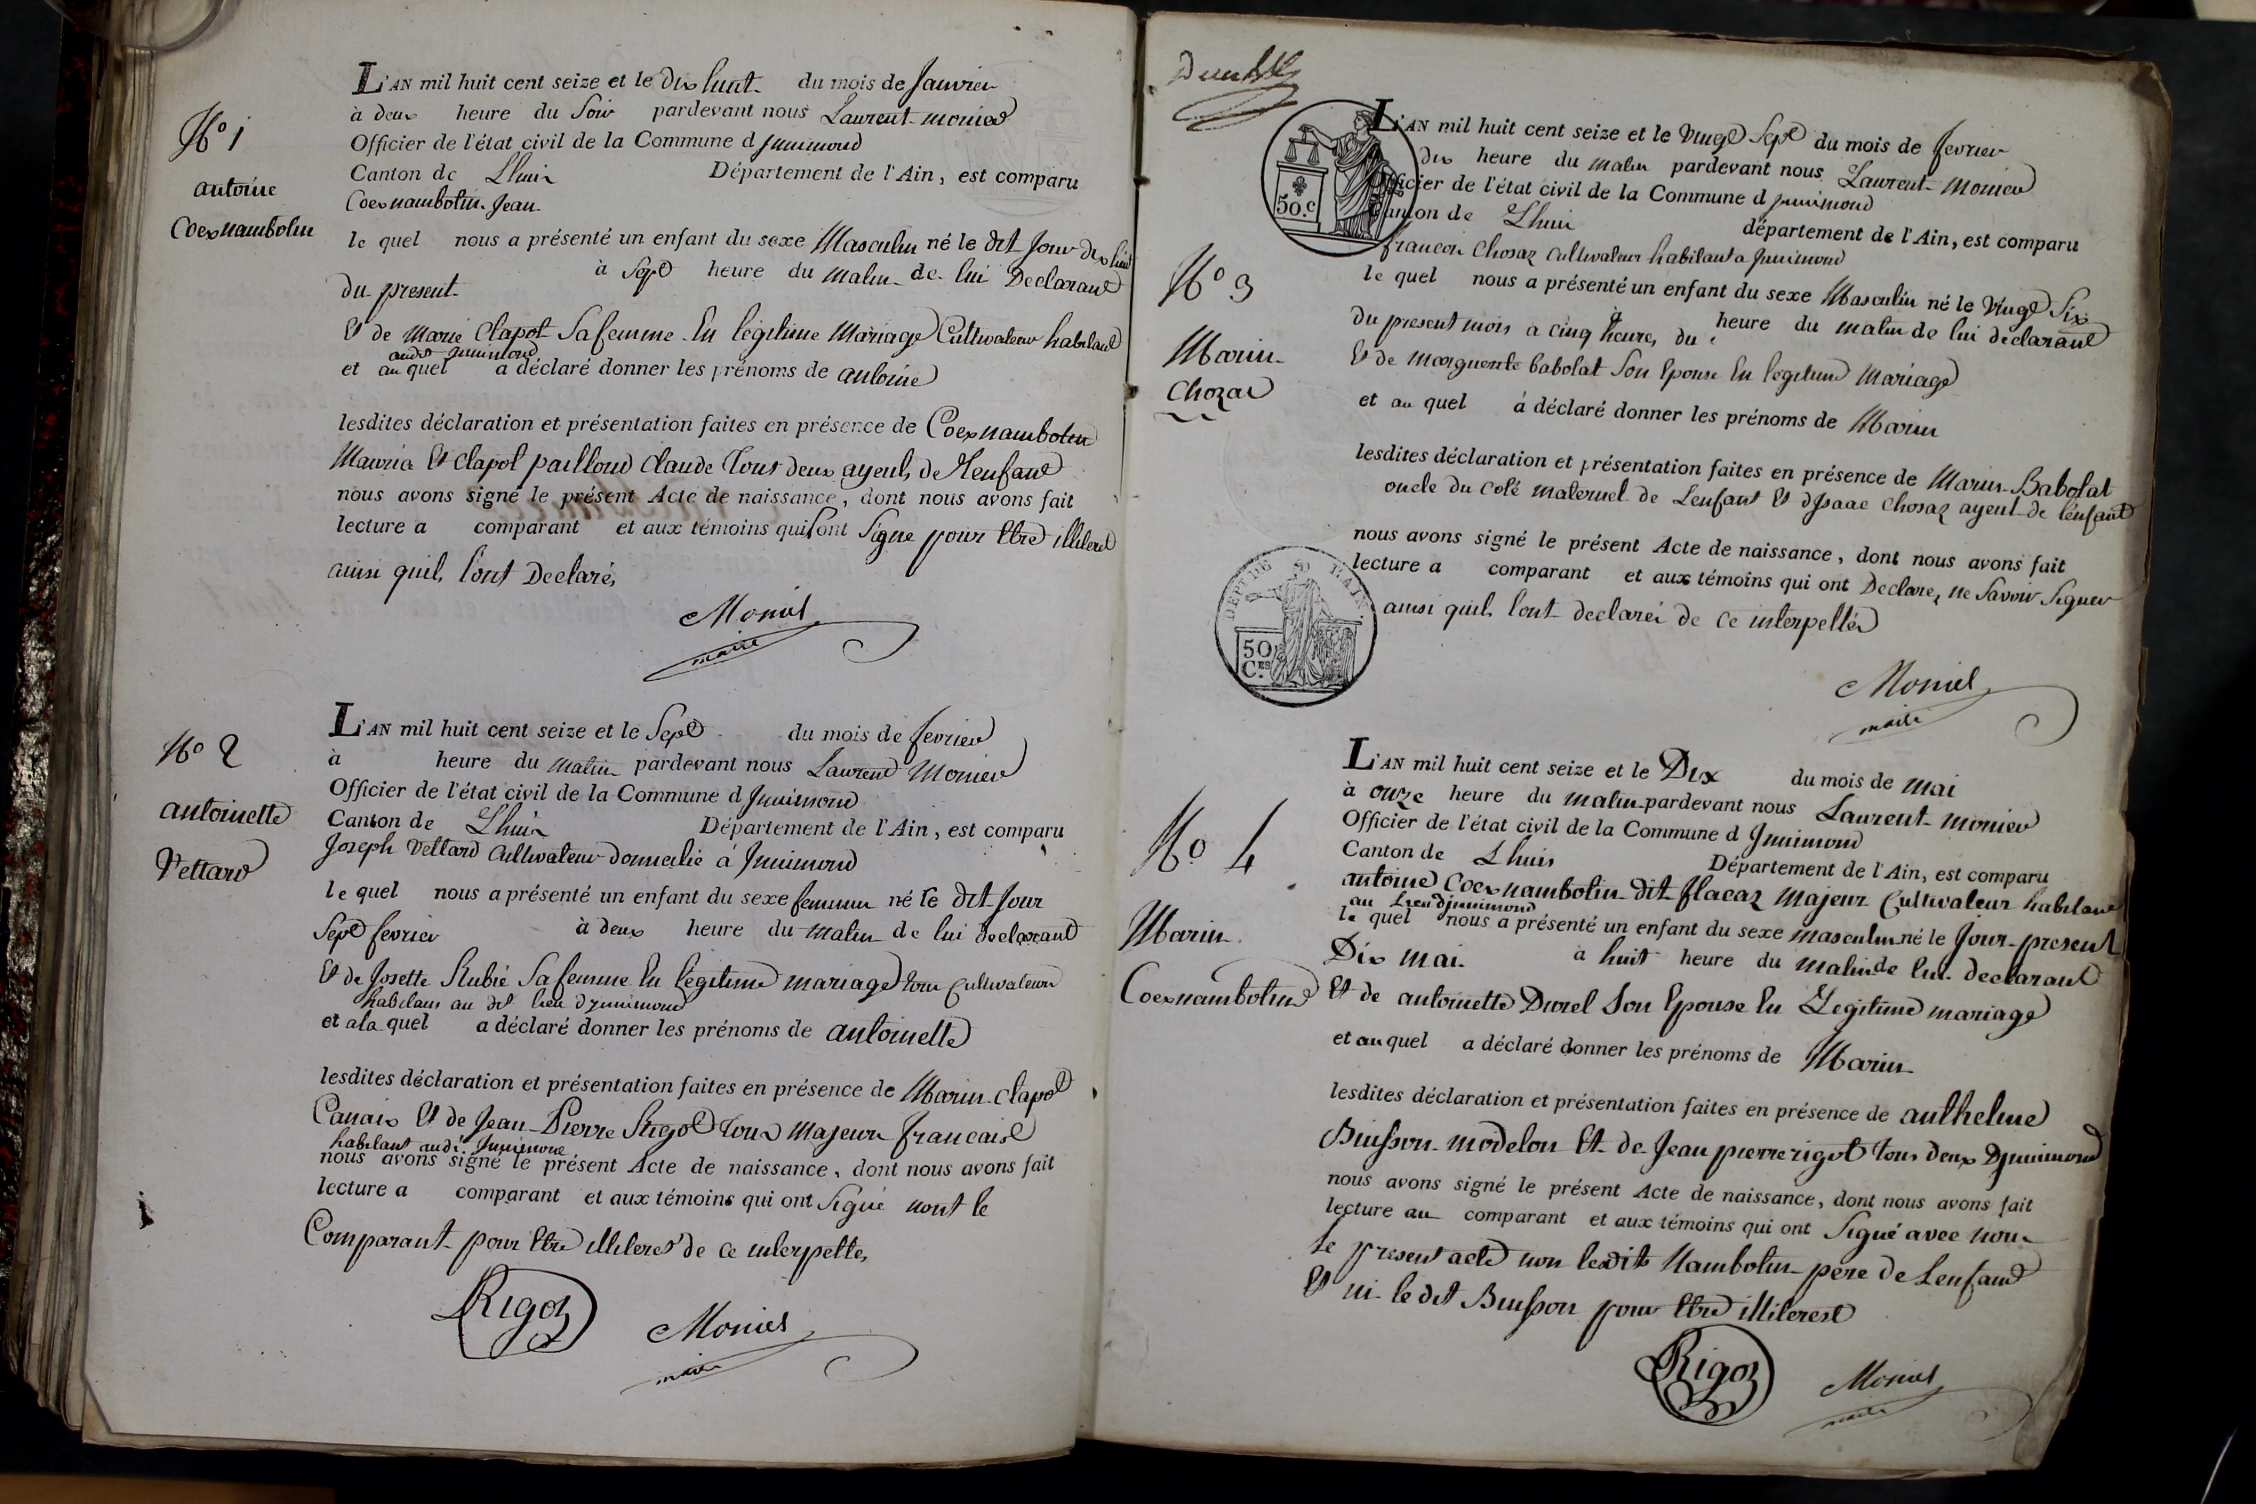 L'AN mil huit cent seize et le dix huit du mois de Janvier
à deux heure du Soir pardevant nous Laurent monier
Officier de l'état civil de la Commune d Jnnimond
Canton de Lhuis Département de l'Ain, est comparu
Coexnambotin Jean
le quel nous a présenté un enfant du sexe Masculin né le dit Jour dix huit
du present à Sept heure du matin de lui Declarant
Et de Marie Clapot Sa femme En légitime Mariage Cultivateur habitant
audit Jnnimond
et au quel a déclaré donner les prénoms de antoine
lesdites déclaration et présentation faites en présence de Coexnambotin
Et Clapot pailloud Claude Tous deux ayeuls de Lenfant
nous avons signé le présent Acte de naissance, dont nous avons fait
lecture a comparant et aux témoins qui sont Signe pour Etre illiteret
ainsi quils l'ont Declaré,
Monier
maire
N° 1
antoine
Coexnambotin
L'AN mil huit cent seize et le Sept du mois de fevrier
à heure du matin pardevant nous Laurend Monier
Officier de l'état civil de la Commune d Jnnimond
Canton de Lhuis Département de l'Ain, est comparu
Joseph Vettard Cultivateur domicilié à Jnnimond
le quel nous a présenté un enfant du sexe feminin né le dit Jour
Sept fevrier à deux heure du matin de lui declarant
Et de Josette Rubié Sa femme En légitime mariage tous Cultivateurs
habitans au dit lieu d'Jnnimond
et a la quel a déclaré donner les prénoms de antoinette
lesdites déclaration et présentation faites en présence de Marin Clapot
Canaix Et de Jean Pierre Rigot Tous Majeur francaise
habitant audi Jnnimond
nous avons signé le présent Acte de naissance, dont nous avons fait
lecture a comparant et aux témoins qui ont Signé nont le
Comparant pour Etre illiteret de ce interpelle,
Rigot
Monier
maire
N° 2
antoinette
Vettard
L'AN mil huit cent seize et le Vingt Sept du mois de fevrier
dix heure du matin pardevant nous Laurent Monier
Officier de l'état civil de la Commune d Jnnimond
Canton de Lhuis département de l'Ain, est comparu
francois Chosaz Cultivateur habitant a Jnnimond
le quel nous a présenté un enfant du sexe Masculin né le Vingt Six
du present mois a cinq heure, du heure du matin de lui déclarant
Et de marguerite babolat Son Epouse En legitime Mariage
et au quel à déclaré donner les prénoms de Marin
lesdites déclaration et présentation faites en présence de Marin Babolat
oncle du Colé maternel de Lenfant Et d'Jsaac Chosaz ayeul de lenfant
nous avons signé le présent Acte de naissance, dont nous avons fait
lecture a comparant et aux témoins qui ont Declare, ne Savoir Signer
ainsi quils l'ont declaré de ce interpellés
Monier
maire
50.c
N° 3
Marin
Chozas
DEPT DE L'AIN.
50
C.ES
L'AN mil huit cent seize et le Dix du mois de mai
à onze heure du matin pardevant nous Laurent monier
Officier de l'état civil de la Commune d Jnnimond
Canton de Lhuis Département de l'Ain, est comparu
antoine Coexnambotin dit flacaz Majeur Cultivateur habitant
au Lieu d'jnnimond
le quel nous a présenté un enfant du sexe masculin né le Jour present
Dix mai à huit heure du matin de lui declarant
Et de antoinette Durel Son Epouse En Legitime mariage
et au quel a déclaré donner les prénoms de Marin
lesdites déclaration et présentation faites en présence de anthelme
Buisson modelon Et de Jean pierre rigot Tous deux Djnnimond
nous avons signé le présent Acte de naissance, dont nous avons fait
lecture au comparant et aux témoins qui ont Signé avec nous
Le present acte non lesdits Nambotin pere de Lenfant
Et ni le dit Buisson pour Etre illiterest
Rigot
Monier
maire
N° 4
Marin
Coexnambotin